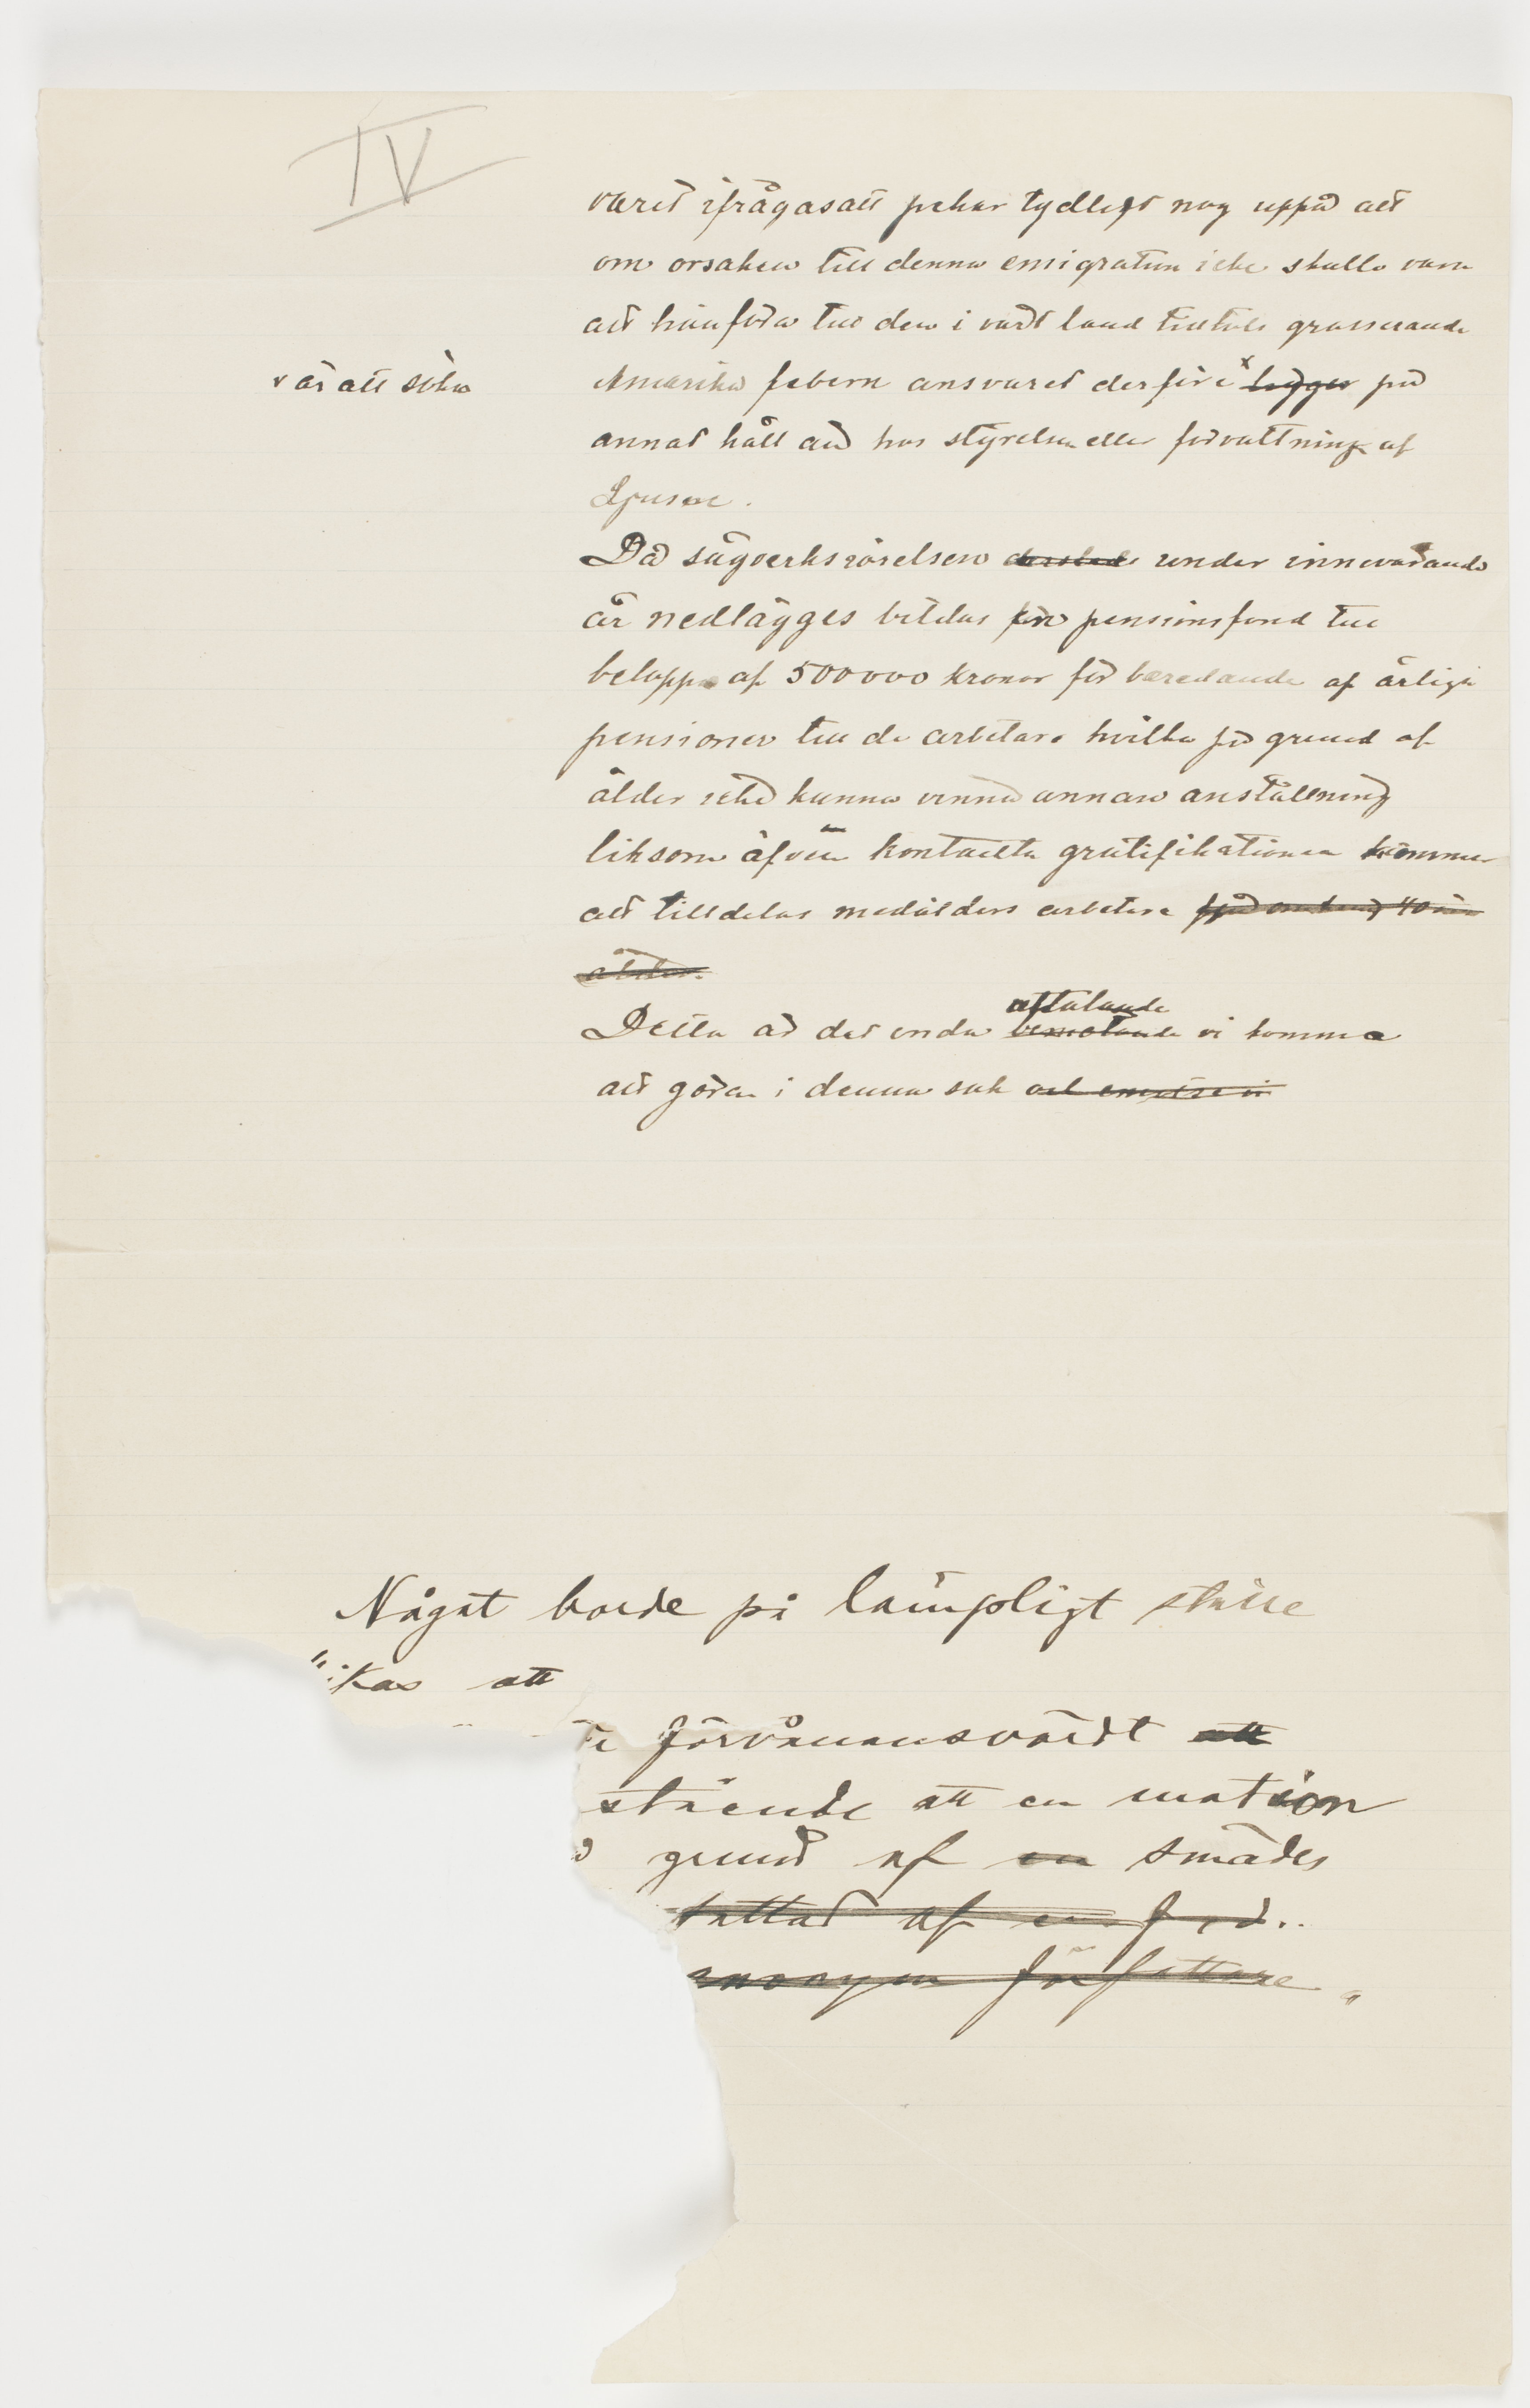 IV
varit ifrågasatt pekar tydligt nog uppå att
om orsaken till denna emigration icke skulle vara
att hänföra till den i vårt land grasserande
v är att söka
Amerika febern ansvaret derför x ligger på
annat håll än hos styrelsen eller förvaltning af
Ljusne.
Då sågverksrörelsen under innevarande
år nedlägges bildas en pensionsfond till
belopp af 500000 kronor för beredande af årliga
pensioner till de arbetare hvilka på grund af
ålder icke kunna vinna annan anställning
liksom äfven kontanta gratifikationer kommer
att tilldelas medålders arbetare 40 års
ålder.
uttalande
Detta är det enda bemötande vi komma
att göra i denna sak och emotse vi
Något borde på lämpligt ställe
ikas att
förvånansvärdt att
stående att en motion
grund af en smädes
fattad af en
anonym författare.